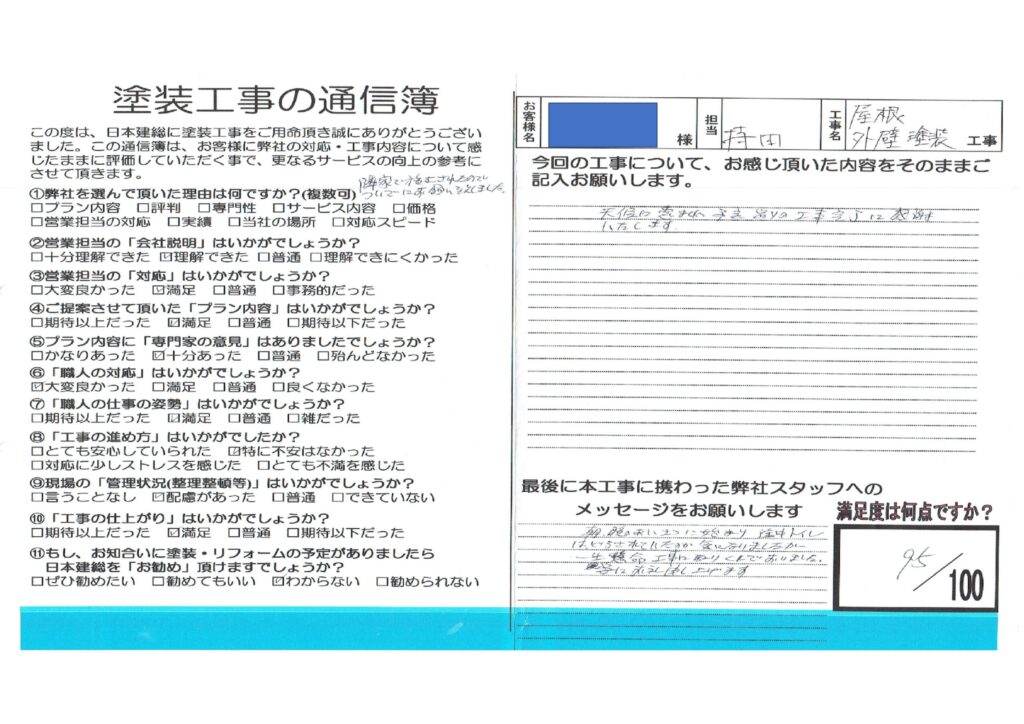 塗装工事の通信簿
この度は、日本建総に塗装工事をご用命頂き誠にありがとうござい
ました。この通信簿は、お客様に弊社の対応・工事内容について感
じたままに評価していただく事で、更なるサービスの向上の参考に
させて頂きます。
①弊社を選んで頂いた理由は何ですか?(複数可)
隣家で施工されたので
ついでにお願いをしました。
□プラン内容 □評判 □専門性 □サービス内容 □価格
□営業担当の対応 □実績 □当社の場所 □対応スピード
②営業担当の「会社説明」はいかがでしょうか?
□十分理解できた ☑理解できた □普通 □理解できにくかった
③営業担当の「対応」はいかがでしょうか?
□大変良かった ☑満足 □普通 □事務的だった
④ご提案させて頂いた「プラン内容」はいかがでしょうか?
□期待以上だった ☑満足 □普通 □期待以下だった
⑤プラン内容に「専門家の意見」はありましたでしょうか?
□かなりあった ☑十分あった □普通 □殆んどなかった
⑥「職人の対応」はいかがでしょうか?
☑大変良かった □満足 □普通 □良くなかった
⑦「職人の仕事の姿勢」はいかがでしょうか?
□期待以上だった ☑満足 □普通 □雑だった
⑧「工事の進め方」はいかがでしたか?
□とても安心していられた ☑特に不安はなかった
□対応に少しストレスを感じた □とても不満を感じた
⑨現場の「管理状況(整理整頓等)」はいかがでしょうか?
□言うことなし ☑配慮があった □普通 □できていない
⑩「工事の仕上がり」はいかがでしょうか?
□期待以上だった ☑満足 □普通 □期待以下だった
⑪もし、お知合いに塗装・リフォームの予定がありましたら
日本建総を「お勧め」頂けますでしょうか?
□ぜひ勧めたい □勧めてもいい ☑わからない □勧められない
お客様名 様 担当 持田 工事名 屋根
外壁塗装 工事
今回の工事について、お感じ頂いた内容をそのままご
記入お願いします。
天候に恵まれ 予定通りの工事完了に感謝
いたします。
最後に本工事に携わった弊社スタッフへの
メッセージをお願いします
朝晩のあいさつに始まり
気になりましたが
一生懸命 工事に取りくんでおりました。
お礼申し上げます
満足度は何点ですか?
95/100